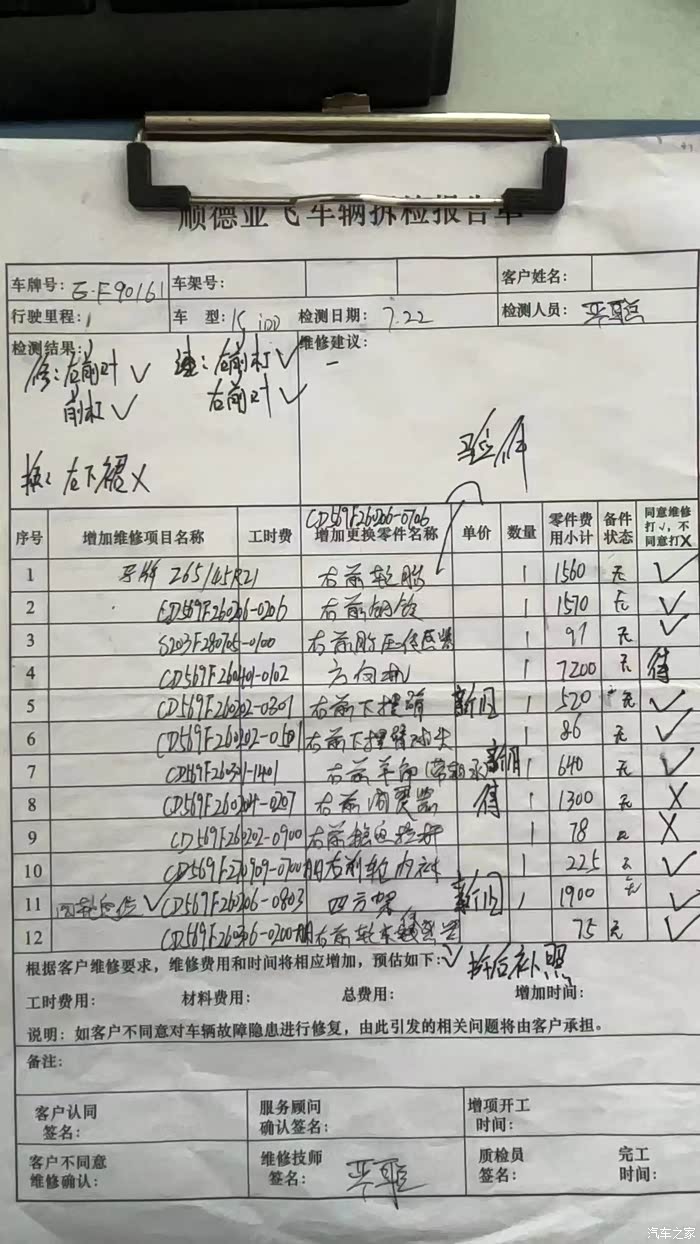 顺德亚飞车辆拆检报告单
车牌号: E·F90161 车架号: 客户姓名:
行驶里程: 车 型: 检测日期: 7.22 检测人员:
检测结果: 维修建议:
修:右前叶 ✓ 前杠 ✓
右前叶 ✓
前杠 ✓
换: 右下裙 X
验件
CD569F260206-0706
序号 增加维修项目名称 工时费 增加更换零件名称 单价 数量 零件费用小计 备件状态 同意维修打√,不同意打X
1 265/45R21 右前轮胎 1 1560 无 ✓
2 CD569F260206-0206 右前钢铃 1 1570 无 ✓
3 S203F280705-0100 右前胎压传感器 1 97 无 ✓
4 CD569F260401-0102 方向机 1 7200 无 待
5 CD569F260202-0301 右前下摆臂 新旧 1 520 无 ✓
6 CD569F260202-0501 右前下摆臂球头 1 86 无 ✓
7 CD569F260301-1401 右前羊角 1 640 无 ✓
8 CD569F260204-0207 右前减震器 待 1 1300 无 X
9 CD569F260202-0900 右前稳定拉杆 1 78 无 X
10 CD569F270909-0700 右前轮内衬 1 225 无 ✓
11 四轮定位 ✓ CD569F260206-0803 四方架 新旧 1 1900 无 ✓
12 右前轮 75 无 ✓
根据客户维修要求,维修费用和时间将相应增加,预估如下: ✓ 拆后补照
工时费用: 材料费用: 总费用: 增加时间:
说明:如客户不同意对车辆故障隐患进行修复,由此引发的相关问题将由客户承担。
备注:
客户认同签名: 服务顾问确认签名: 增项开工时间:
客户不同意维修确认: 维修技师签名: 质检员签名: 完工时间:
汽车之家